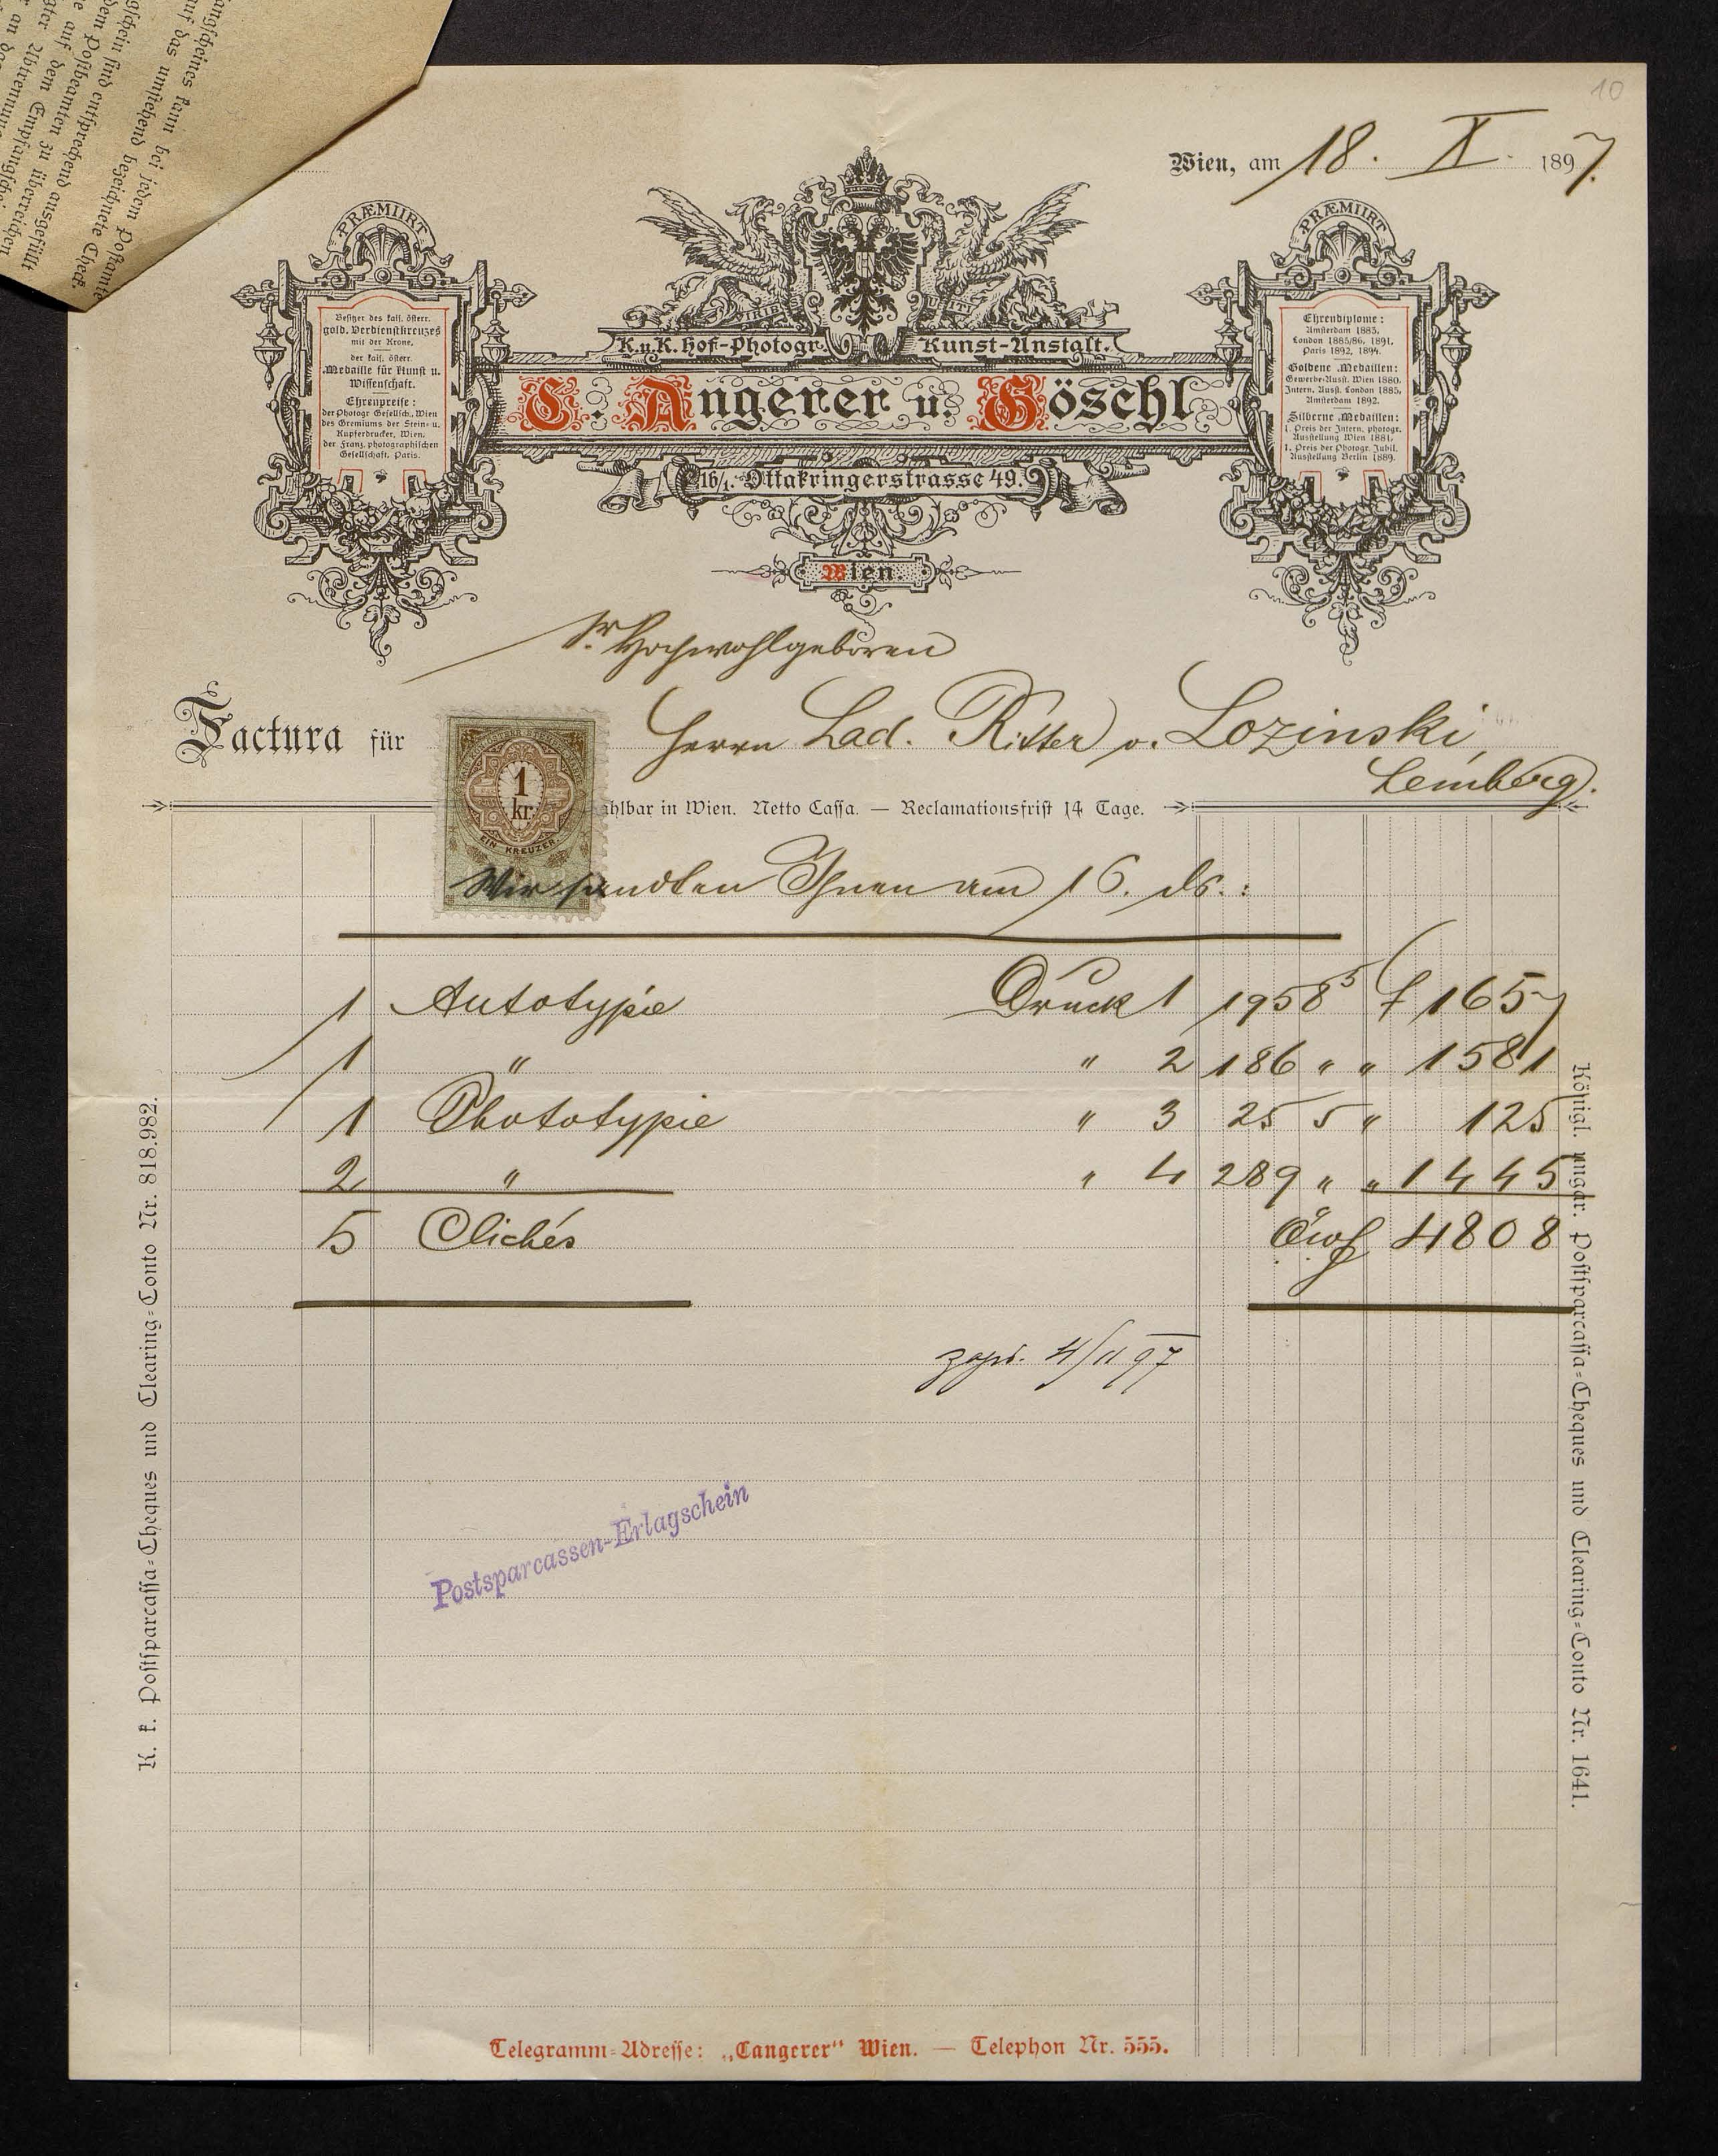 10
angscheines kann bei jedem Postamte
auf das umstehend bezeichnete Check
gschein sind entsprechend ausgefüllt
dem Postbeamten zu überreichen
auf den Empfangsschei
gter Abtrennung
an de
Wien, am 18. X. 1897.
PRÆMIIRT
Besitzer des kais. österr.
gold. Verdienstkreuzes
mit der Krone.
der kais. österr.
Medaille für Kunst u.
Wissenschaft.
Ehrenpreise:
der Photogr. Gesellsch. Wien
des Gremiums der Stein- u.
Kupferdrucker, Wien.
der Franz. photographischen
Gesellschaft, Paris.
VIRIBUS UNITIS
K.u.K. Hof-Photogr. Kunst-Anstalt.
C. Angerer u. Göschl
16/1. Ottakringerstrasse 49.
Wien
PRÆMIIRT
Ehrendiplome:
Amsterdam 1883.
London 1885/86, 1891.
Paris 1892, 1894.
Goldene Medaillen:
Gewerbe-Ausst. Wien 1880.
Intern. Ausst. London 1885.
Amsterdam 1892.
Silberne Medaillen:
1. Preis der Intern. photogr.
Ausstellung Wien 1881.
1. Preis der Photogr. Jubil.
Ausstellung Berlin 1889.
Sr. Hochwohlgeboren
Factura für Herrn Lad. Ritter v. Lozinski,
Lemberg.
1 kr.
EIN KREUZER
ahlbar in Wien. Netto Cassa. — Reclamationsfrist 14 Tage.
Wir sandten Ihnen am 16. ds.:
1 Autotypie Druck 1 195 8⁵ f 16 57
1 " " 2 186 " " 15 81
1 Phototypie " 3 25 5 " 1 25
2 " " 4 289 " " 14 45
5 Clichés Öwf 48 08
zapł. 4/11 97
Postsparcassen-Erlagschein
K. k. Postsparcassa-Cheques und Clearing-Conto Nr. 818.982.
Königl. ungar. Postsparcassa-Cheques und Clearing-Conto Nr. 1641.
Telegramm-Adresse: „Cangerer“ Wien. — Telephon Nr. 555.